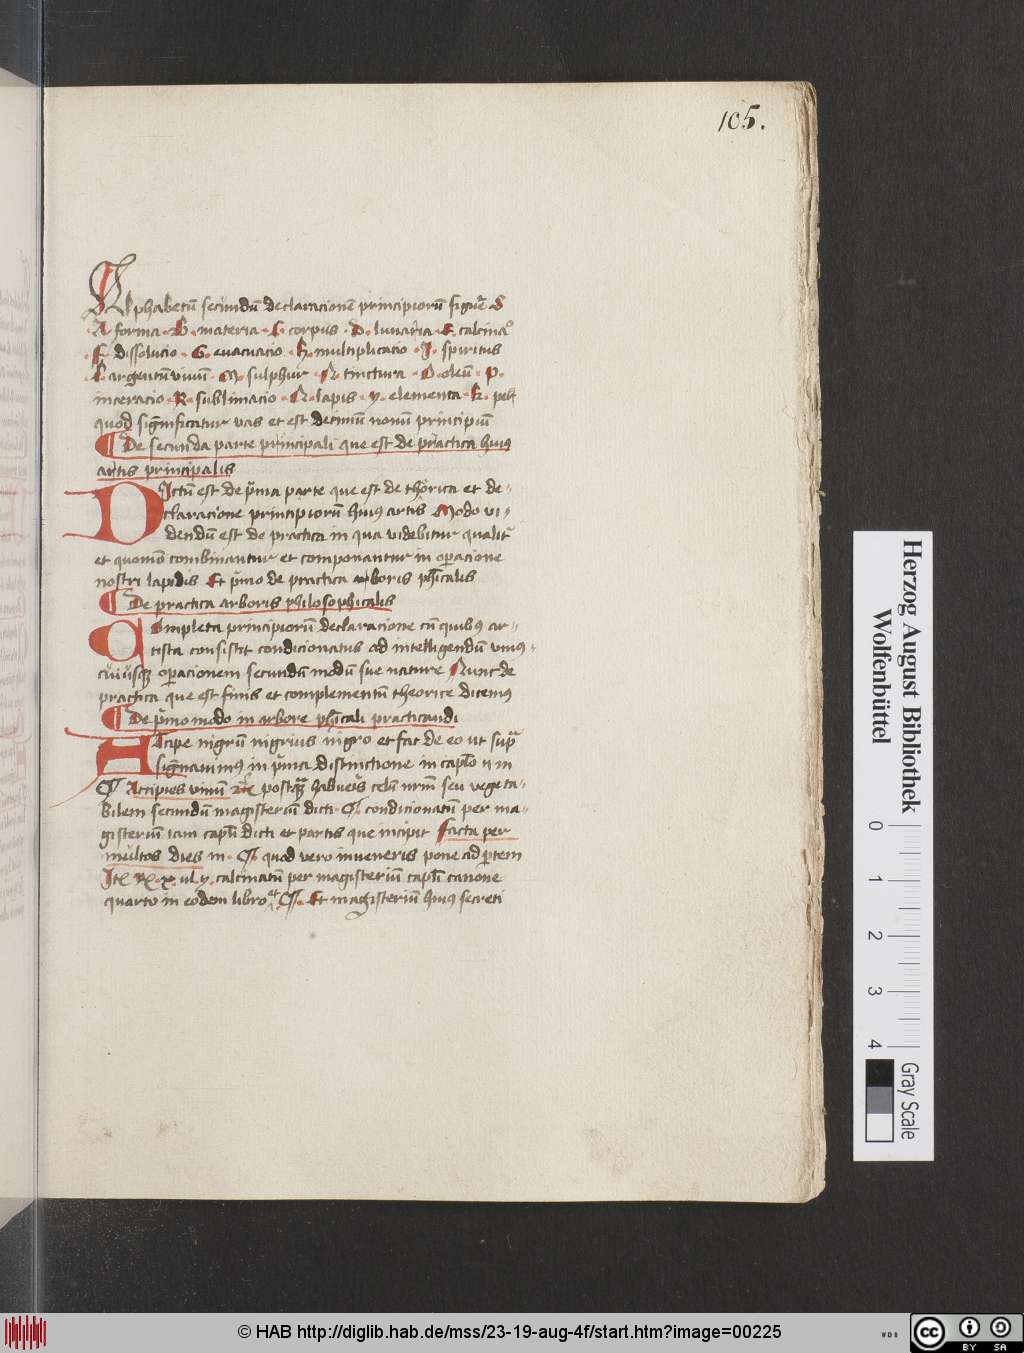 105.
Alphabetū secūndū declaracionē principiorū figure S
A forma · B · materia · C · corpus · D · lunaria · E · calcinaᵒ
F · dissolucio · G · euacuacio · H · multiplicacio · I · spiritus
L · argentū viuū · M · sulphur · N · tinctura · O · oleū · P ·
inceracio · R · sublimacio · lapis · y · elementa · k ·
quod significatur vas et est decimū nonū principiū
¶ De secunda parte principali que est de practica huiꝰ
artis principalis
Dictū est de pͥma parte que est de theorica et de-
claracione principiorū huiꝰ artis Modo vi-
dendū est de practica in qua videbitur qualitͬ
et quomō combinantur et componantur in opacione
nostri lapidis Et pͥmo de practica arboris phīcalis
¶ De practica arboris philosophicalis
Completa principiorū declaracione cū quibꝰ ar-
tista consistit condicionatus ad intelligendū vnius-
cuiusqꝫ opacionem secundū modū sue nature Nunc de
practica que est finis et complementū theorice dicemꝰ
¶ De pͥmo modo in arbore phīcali practicandi
Accipe nigrū nigrius nigro et fac de eo ut supͣ
signauimꝰ in pͥma distinctione in caplo n m
¶ Accipies vinū rc̄ postqꝫ habueris celū nrm̄ seu vegeta-
bilem secundū magisteriū dicti ¶ condicionatū per ma-
gisteriū iam capłi dicti et partis que incipit facta per
multos dies m · ¶ quod vero inueneris pone ad ptem
Itē ℞ · x · ul y · calcinatū per magisteriū capłi canone
quarto in eodem libro et ¶ · Et magisteriū huiꝰ secreti
Herzog August Bibliothek
Wolfenbüttel
0 1 2 3 4
Gray Scale
© HAB http://diglib.hab.de/mss/23-19-aug-4f/start.htm?image=00225
WDB
cc BY SA